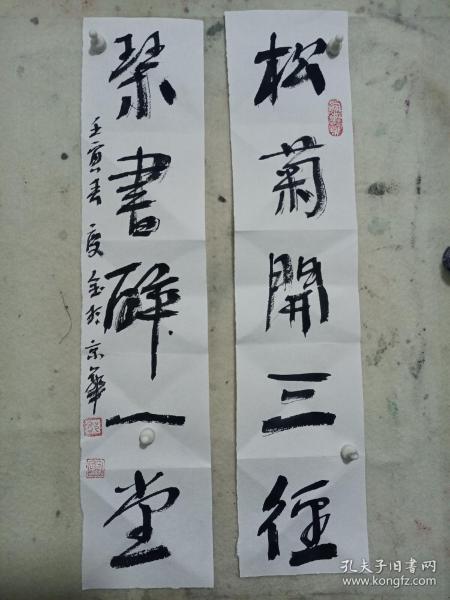 松菊開三徑
琴書醉一堂
壬寅春 金 於京華
孔夫子旧书网
www.kongfz.com